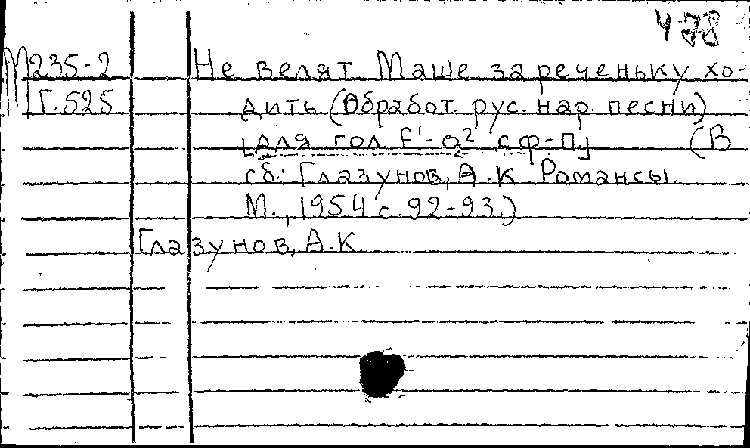 4-78
М235-2 Не велят Маше за реченьку хо-
Г.525 дить (Обработ. рус. нар. песни)
[для гол f¹-a² с ф-п] (В
сб: Глазунов, А.К Романсы.
М., 1954 с. 92-93.)
Глазунов, А.К